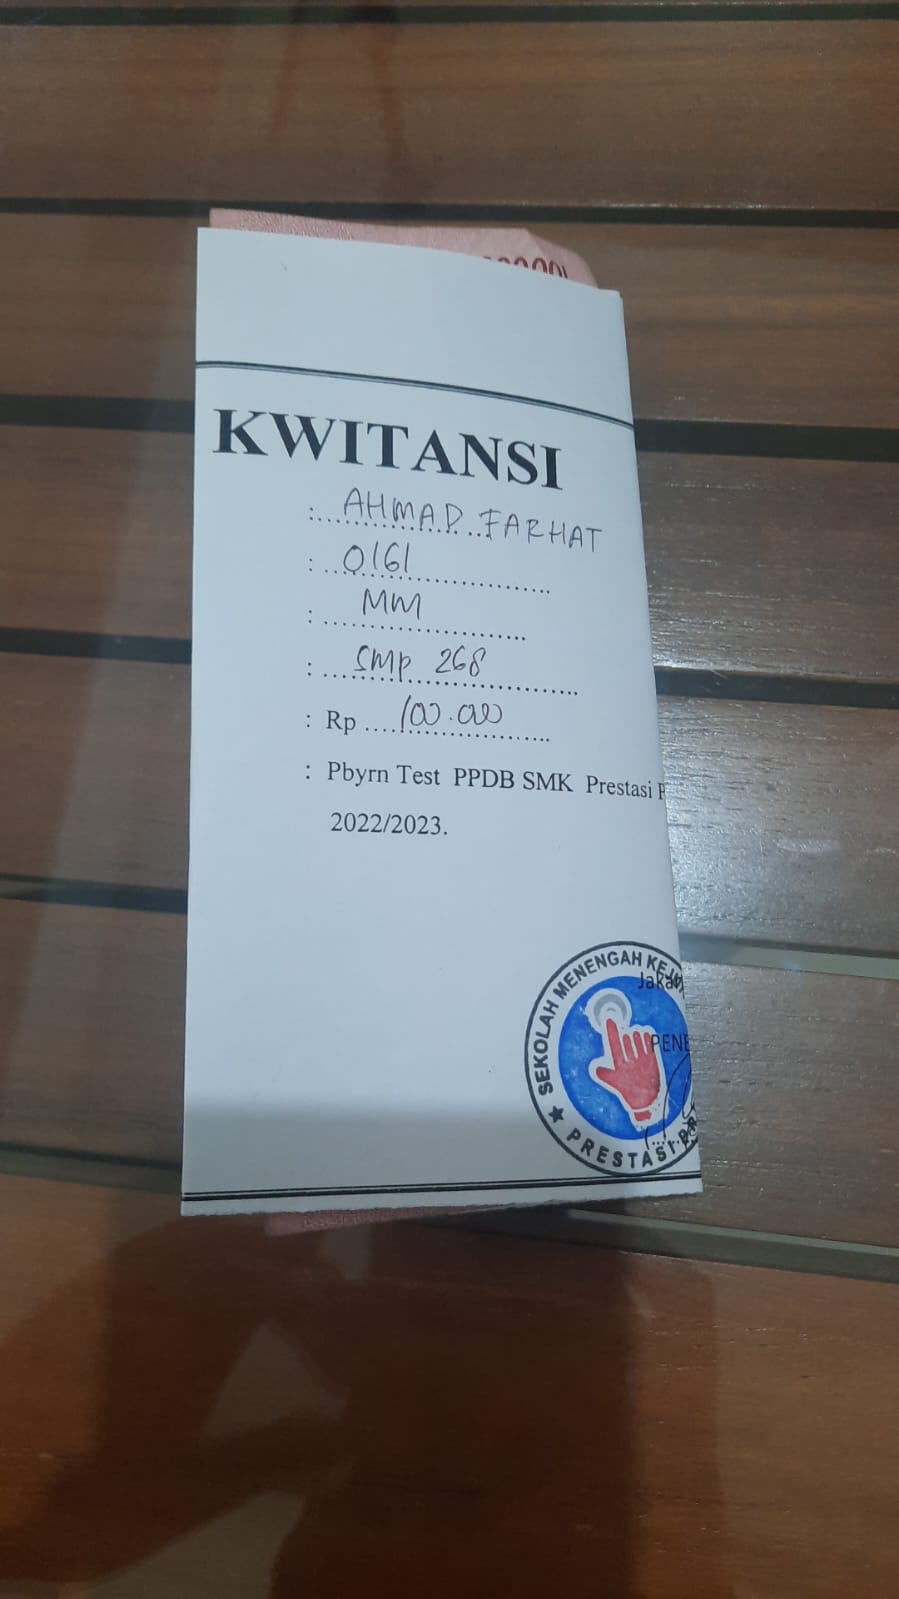 KWITANSI
: AHMAD FARHAT
: 0161
: MM
: SMP 268
: Rp 100.000
: Pbyrn Test PPDB SMK Prestasi P
2022/2023.
SEKOLAH MENENGAH KEJU
Jaka
PENE
★ PRESTASI PR